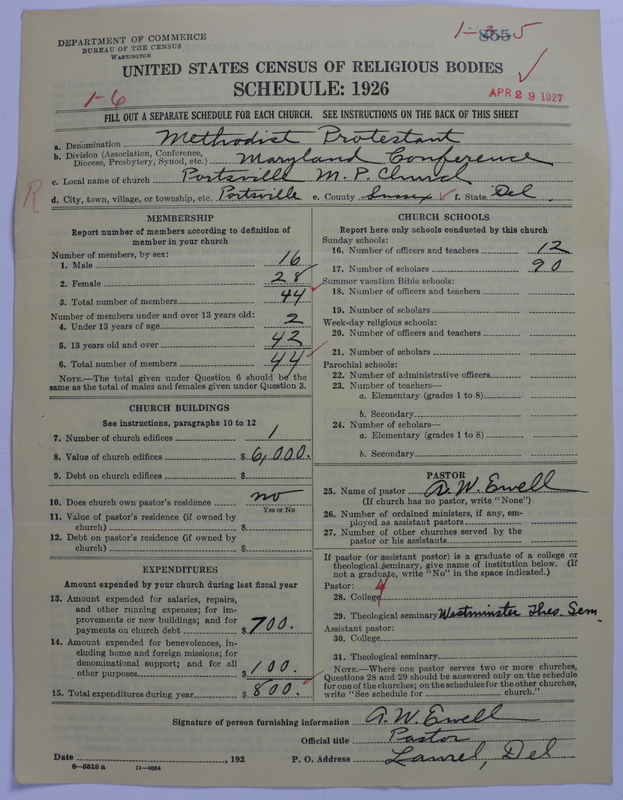 1-355
855
DEPARTMENT OF COMMERCE
BUREAU OF THE CENSUS
WASHINGTON
UNITED STATES CENSUS OF RELIGIOUS BODIES
SCHEDULE: 1926
1-6
APR 29 1927
FILL OUT A SEPARATE SCHEDULE FOR EACH CHURCH. SEE INSTRUCTIONS ON THE BACK OF THIS SHEET
a. Denomination Methodist Protestant
b. Division (Association, Conference, Diocese, Presbytery, Synod, etc.) Maryland Conference
c. Local name of church Portsville M. P. Church
R
d. City, town, village, or township, etc. Portsville e. County Sussex f. State Del.
MEMBERSHIP
Report number of members according to definition of member in your church
Number of members, by sex:
1. Male 16
2. Female 28
3. Total number of members 44
Number of members under and over 13 years old:
4. Under 13 years of age 2
5. 13 years old and over 42
6. Total number of members 44
NOTE.—The total given under Question 6 should be the same as the total of males and females given under Question 3.
CHURCH BUILDINGS
See instructions, paragraphs 10 to 12
7. Number of church edifices 1
8. Value of church edifices $6,000.
9. Debt on church edifices $
10. Does church own pastor's residence no
Yes or No
11. Value of pastor's residence (if owned by church) $
12. Debt on pastor's residence (if owned by church) $
EXPENDITURES
Amount expended by your church during last fiscal year
13. Amount expended for salaries, repairs, and other running expenses; for improvements or new buildings; and for payments on church debt $700.
14. Amount expended for benevolences, including home and foreign missions; for denominational support; and for all other purposes $100.
15. Total expenditures during year $800.
CHURCH SCHOOLS
Report here only schools conducted by this church
Sunday schools:
16. Number of officers and teachers 12
17. Number of scholars 90
Summer vacation Bible schools:
18. Number of officers and teachers
19. Number of scholars
Week-day religious schools:
20. Number of officers and teachers
21. Number of scholars
Parochial schools:
22. Number of administrative officers
23. Number of teachers—
a. Elementary (grades 1 to 8)
b. Secondary
24. Number of scholars—
a. Elementary (grades 1 to 8)
b. Secondary
PASTOR
25. Name of pastor A. W. Ewell
(If church has no pastor, write "None")
26. Number of ordained ministers, if any, employed as assistant pastors
27. Number of other churches served by the pastor or his assistants
If pastor (or assistant pastor) is a graduate of a college or theological seminary, give name of institution below. (If not a graduate, write "No" in the space indicated.)
Pastor:
28. College
29. Theological seminary Westminster Theo. Sem.
Assistant pastor:
30. College
31. Theological seminary
NOTE.—Where one pastor serves two or more churches, Questions 28 and 29 should be answered only on the schedule for one of the churches; on the schedules for the other churches, write "See schedule for church."
Signature of person furnishing information A. W. Ewell
Official title Pastor
Date , 192 P. O. Address Laurel, Del
8—5518 a 11—9064